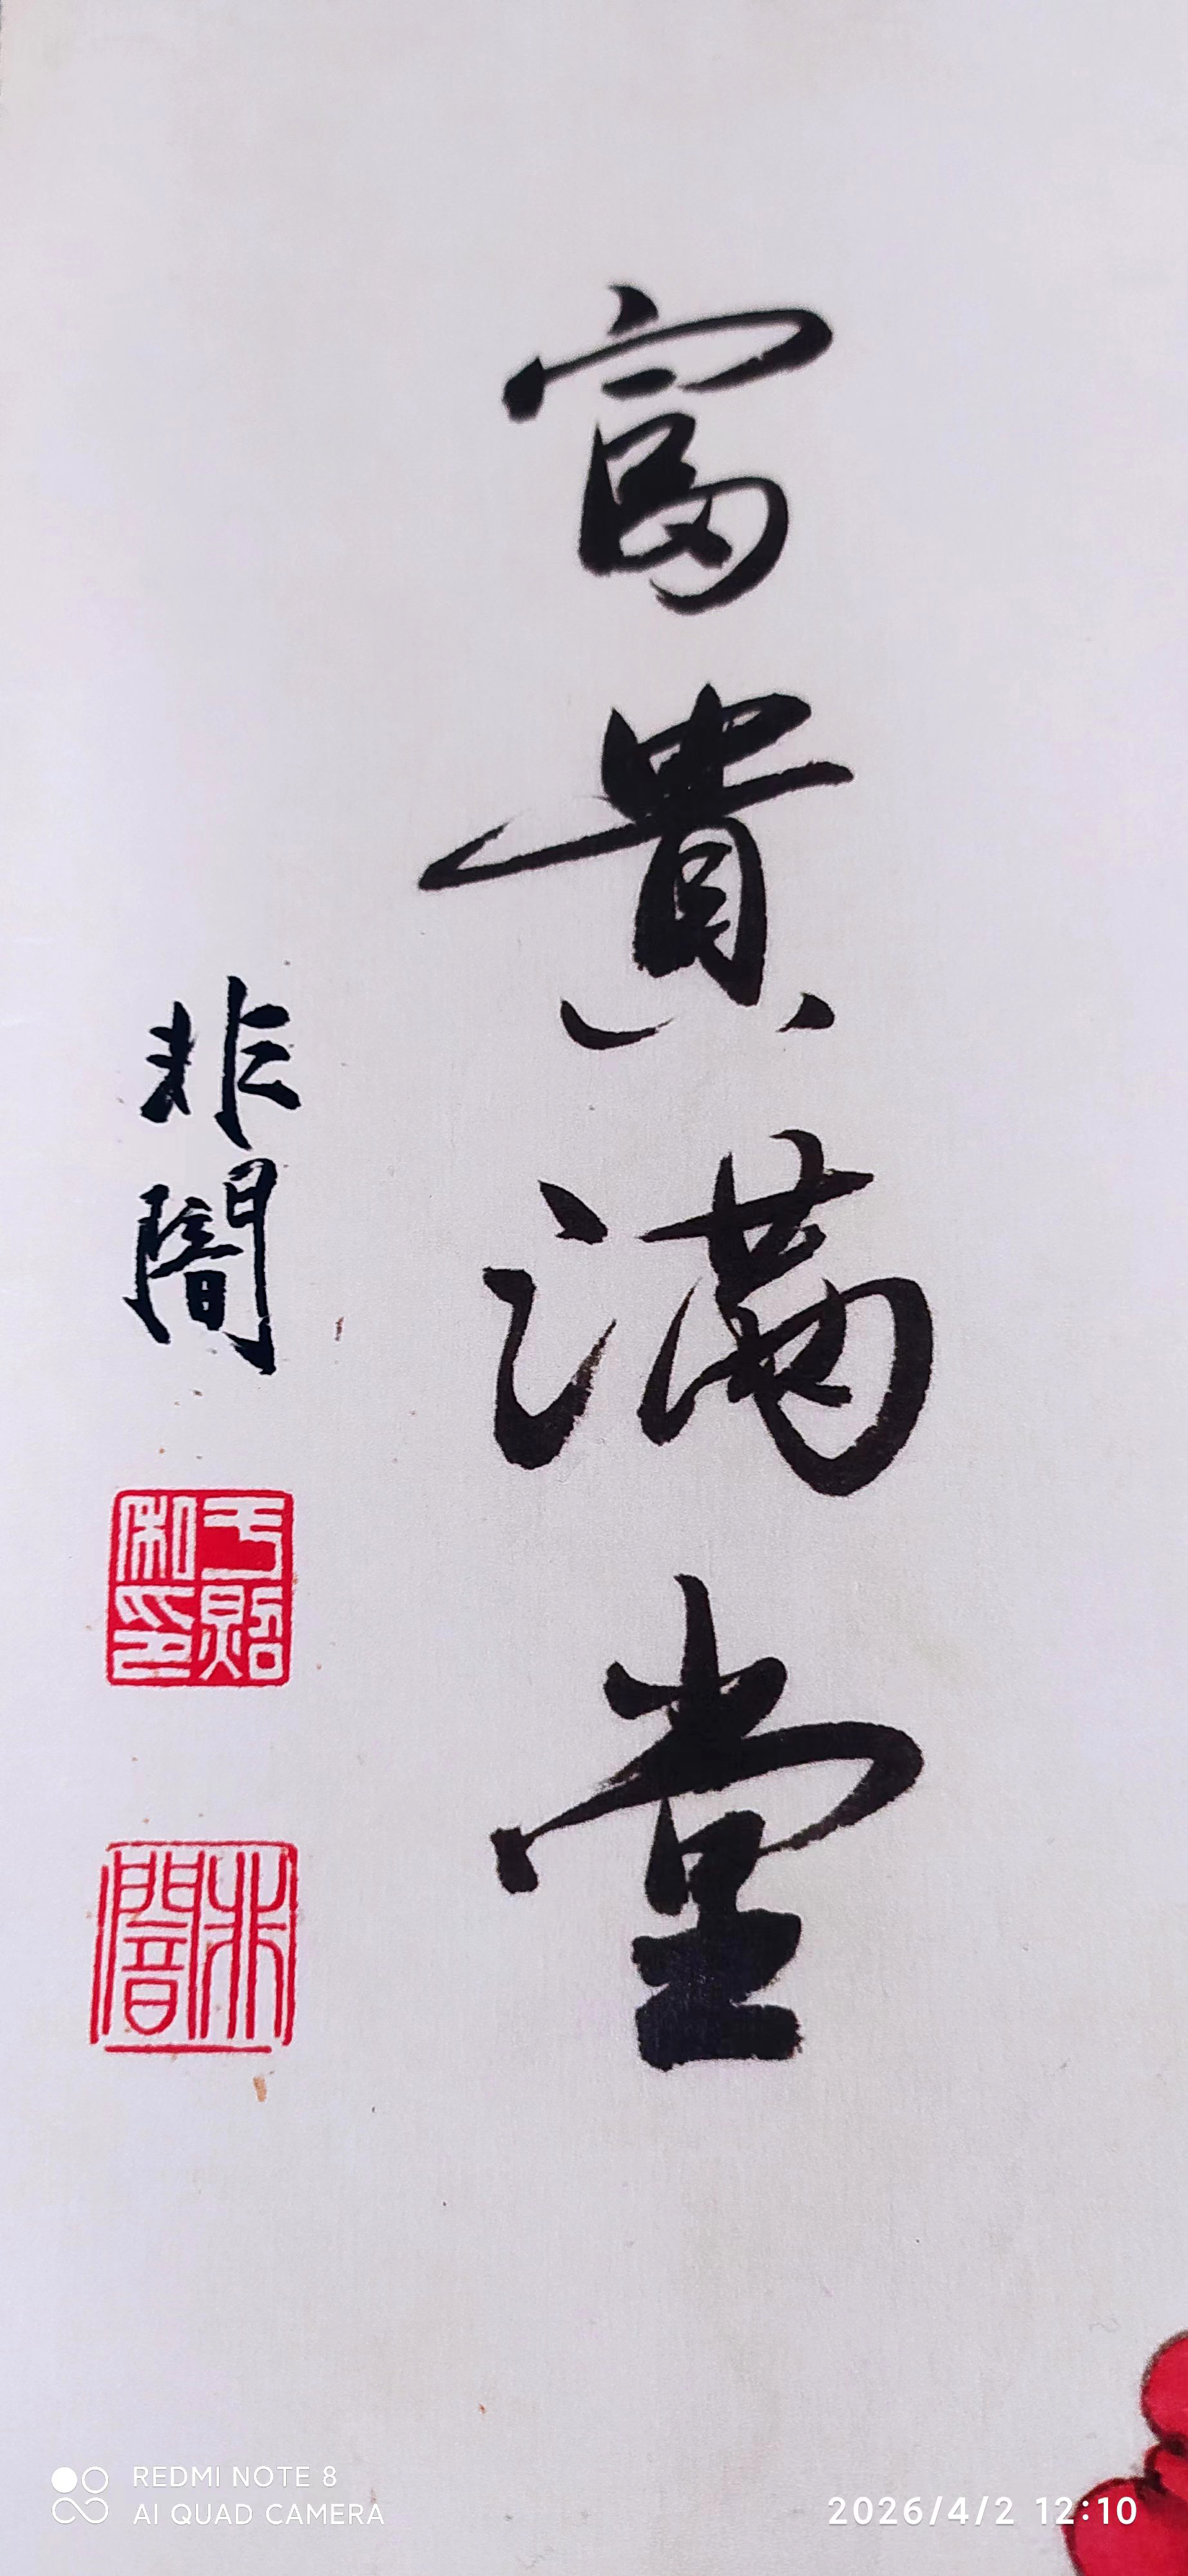 富貴滿堂
非闇
于照私印
非闇
REDMI NOTE 8
AI QUAD CAMERA
2026/4/2 12:10